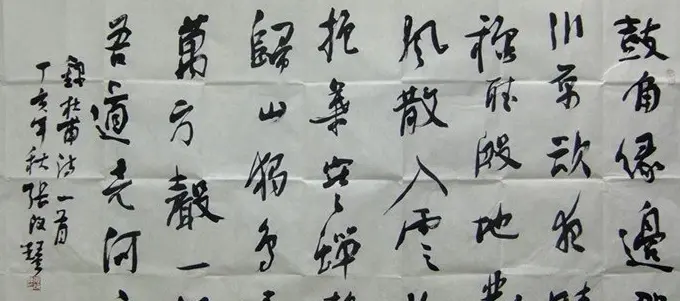 鼓角緣邊
川原欲夜
秋聽殷地發
風散入雲
抱葉寒蟬靜
歸山獨鳥
萬方聲一
吾道竟何
錄杜甫詩一首
丁亥年秋張改琴